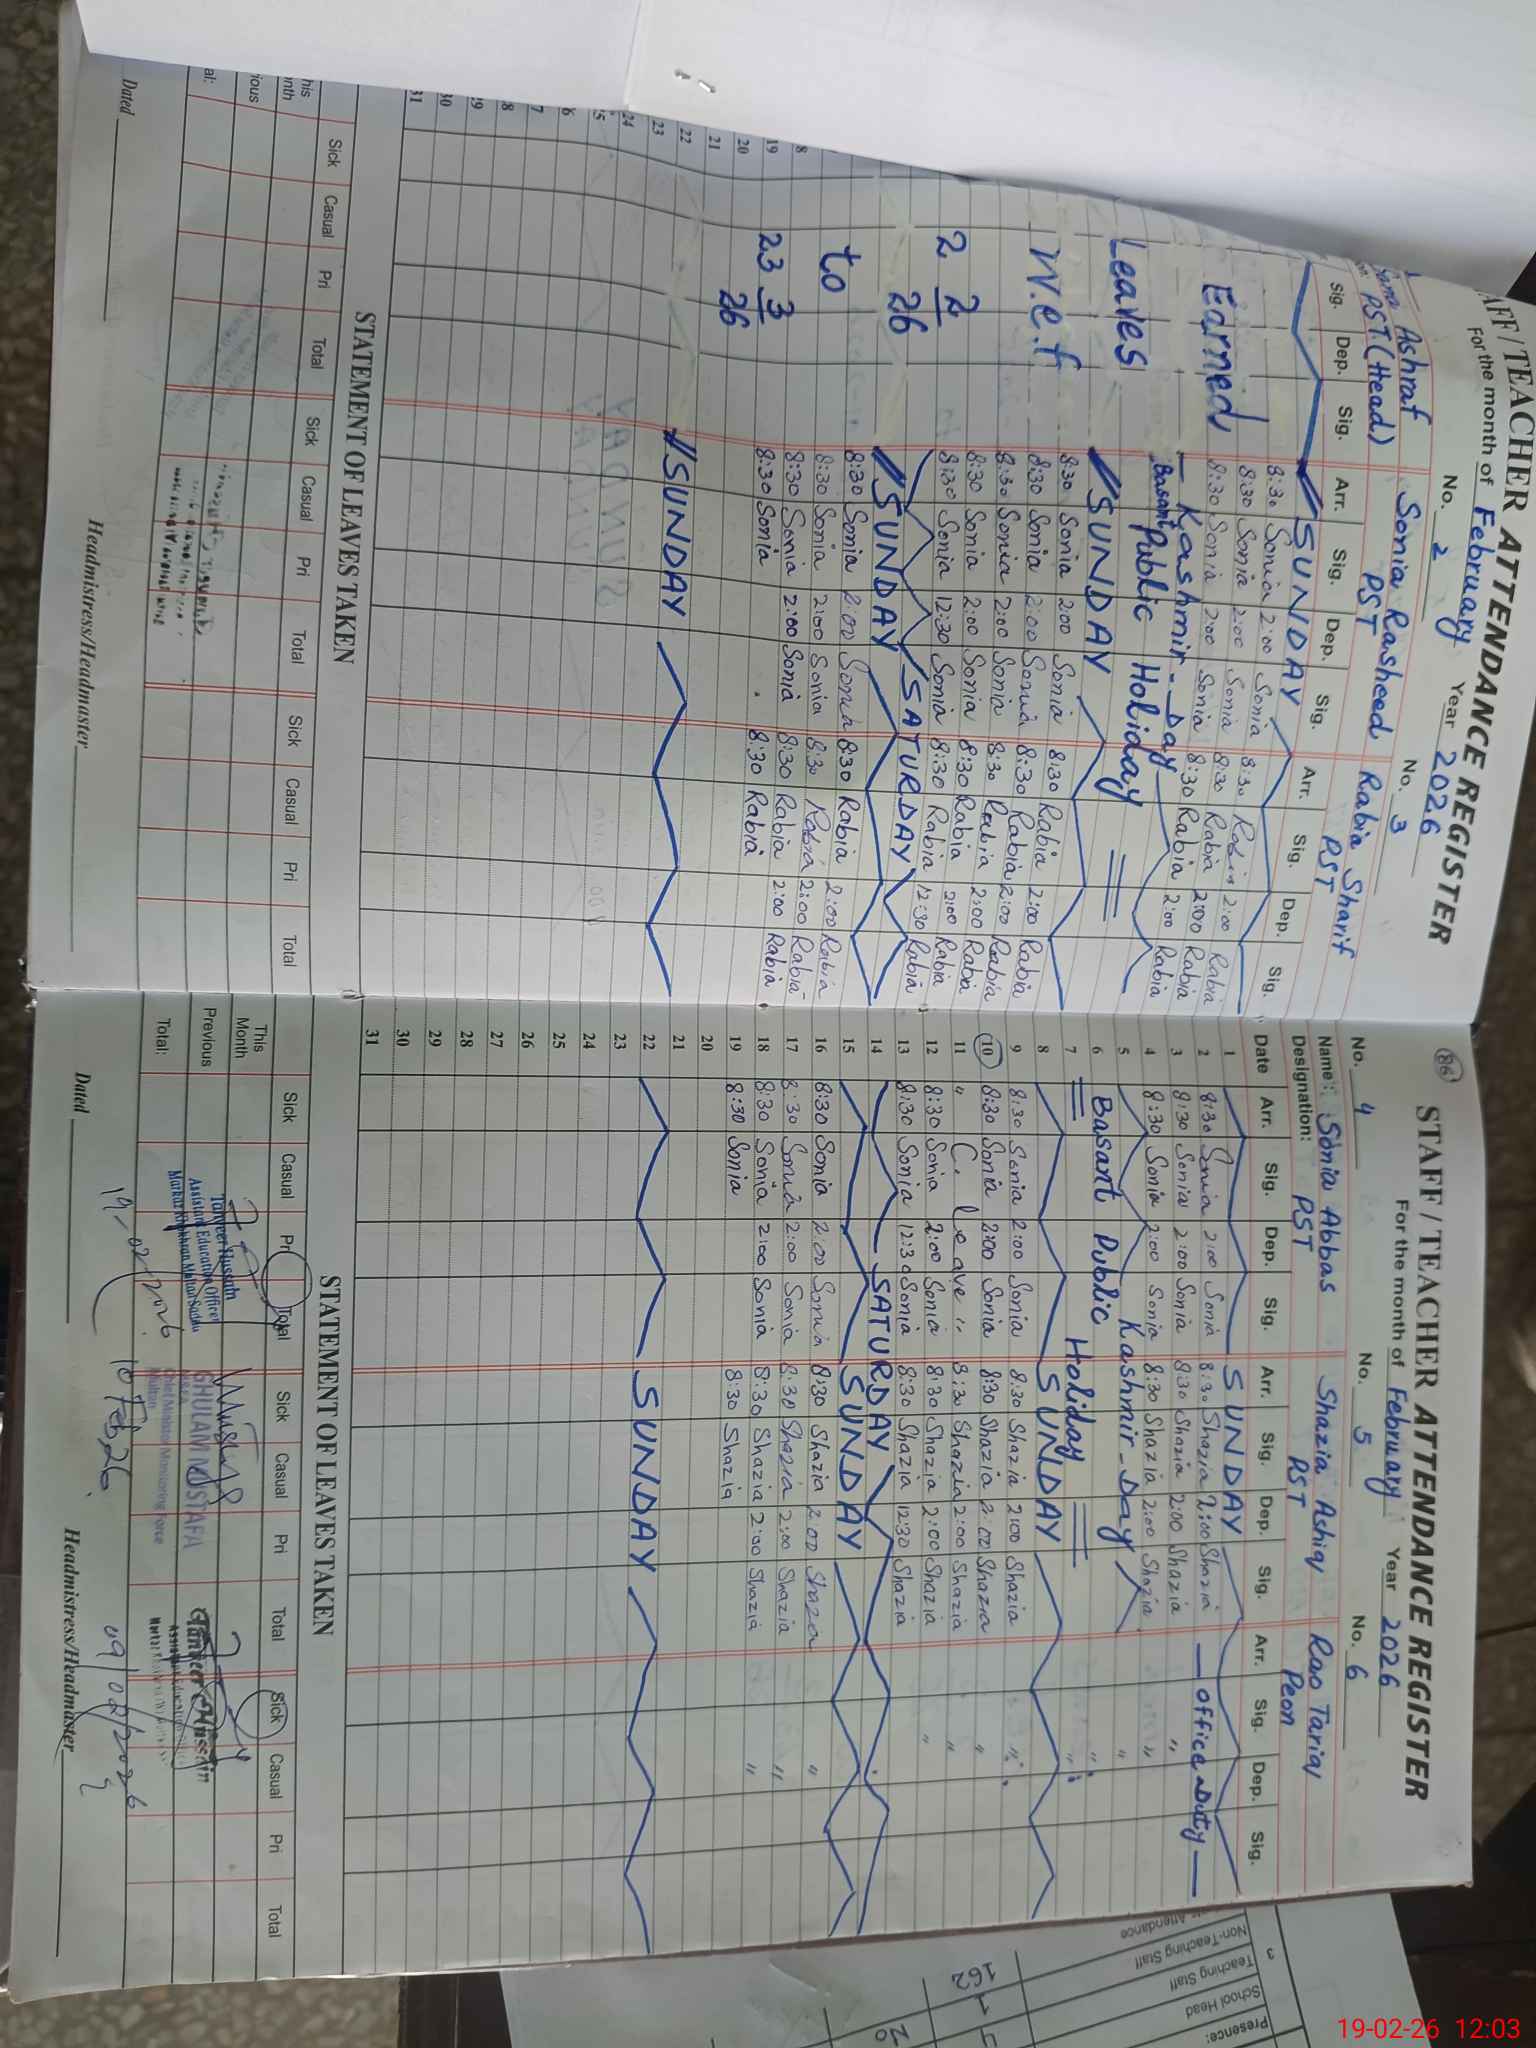 STAFF / TEACHER ATTENDANCE REGISTER
For the month of February Year 2026
No. 2 No. 3
Ashraf Sonia Rasheed Rabia Sharif
PST (Head) PST PST
Sig. Dep. Sig. Arr. Sig. Dep. Sig. Arr. Sig. Dep. Sig.
SUNDAY
8:30 Sonia 2:00 Sonia 8:30 Rabia 2:00 Rabia
8:30 Sonia 2:00 Sonia 8:30 Rabia 2:00 Rabia
8:30 Sonia 2:00 Sonia 8:30 Rabia 2:00 Rabia
Kashmir - Day
Basant Public Holiday
SUNDAY
8:30 Sonia 2:00 Sonia 8:30 Rabia 2:00 Rabia
8:30 Sonia 2:00 Sonia 8:30 Rabia 2:00 Rabia
8:30 Sonia 2:00 Sonia 8:30 Rabia 2:00 Rabia
8:30 Sonia 2:00 Sonia 8:30 Rabia 2:00 Rabia
8:30 Sonia 12:30 Sonia 8:30 Rabia 12:30 Rabia
SATURDAY
SUNDAY
8:30 Sonia 2:00 Sonia 8:30 Rabia 2:00 Rabia
8:30 Sonia 2:00 Sonia 8:30 Rabia 2:00 Rabia
8:30 Sonia 2:00 Sonia 8:30 Rabia 2:00 Rabia
8:30 Sonia 8:30 Rabia
SUNDAY
Earned
Leaves
W.e.f
2 2 26
to
23 3 26
19
20
21
22
23
24
25
STATEMENT OF LEAVES TAKEN
Sick Casual Pri Total Sick Casual Pri Total Sick Casual Pri Total
Dated Headmistress/Headmaster
86
STAFF / TEACHER ATTENDANCE REGISTER
For the month of February Year 2026
No. 4 No. 5 No. 6
Name: Sonia Abbas Shazia Ashiq Rao Tariq
Designation: PST PST Peon
Date Arr. Sig. Dep. Sig. Arr. Sig. Dep. Sig. Arr. Sig. Dep. Sig.
1 SUNDAY
2 8:30 Sonia 2:00 Sonia 8:30 Shazia 2:00 Shazia - office Duty -
3 8:30 Sonia 2:00 Sonia 8:30 Shazia 2:00 Shazia "
4 8:30 Sonia 2:00 Sonia 8:30 Shazia 2:00 Shazia "
5 Kashmir - Day "
6 Basant Public Holiday "
7 "
8 SUNDAY
9 8:30 Sonia 2:00 Sonia 8:30 Shazia 2:00 Shazia "
10 8:30 Sonia 2:00 Sonia 8:30 Shazia 2:00 Shazia "
11 " C. leave " 8:30 Shazia 2:00 Shazia "
12 8:30 Sonia 2:00 Sonia 8:30 Shazia 2:00 Shazia "
13 8:30 Sonia 12:30 Sonia 8:30 Shazia 12:30 Shazia
14 SATURDAY
15 SUNDAY
16 8:30 Sonia 2:00 Sonia 8:30 Shazia 2:00 Shazia "
17 8:30 Sonia 2:00 Sonia 8:30 Shazia 2:00 Shazia "
18 8:30 Sonia 2:00 Sonia 8:30 Shazia 2:00 Shazia "
19 8:30 Sonia 8:30 Shazia
20
21
22 SUNDAY
23
24
25
26
27
28
29
30
31
STATEMENT OF LEAVES TAKEN
Sick Casual Pri Total Sick Casual Pri Total Sick Casual Pri Total
This Month
Previous
Total:
Tanveer Hussain
Assistant Education Officer
19-02-2026
GHULAM MUSTAFA
Chief Minister Monitoring Force
Multan
10 Feb, 26
Tanveer Hussain
09/02/2026
Dated Headmistress/Headmaster
3
Presence:
School Head
Teaching Staff
Non-Teaching Staff
Attendance
1
162
19-02-26 12:03